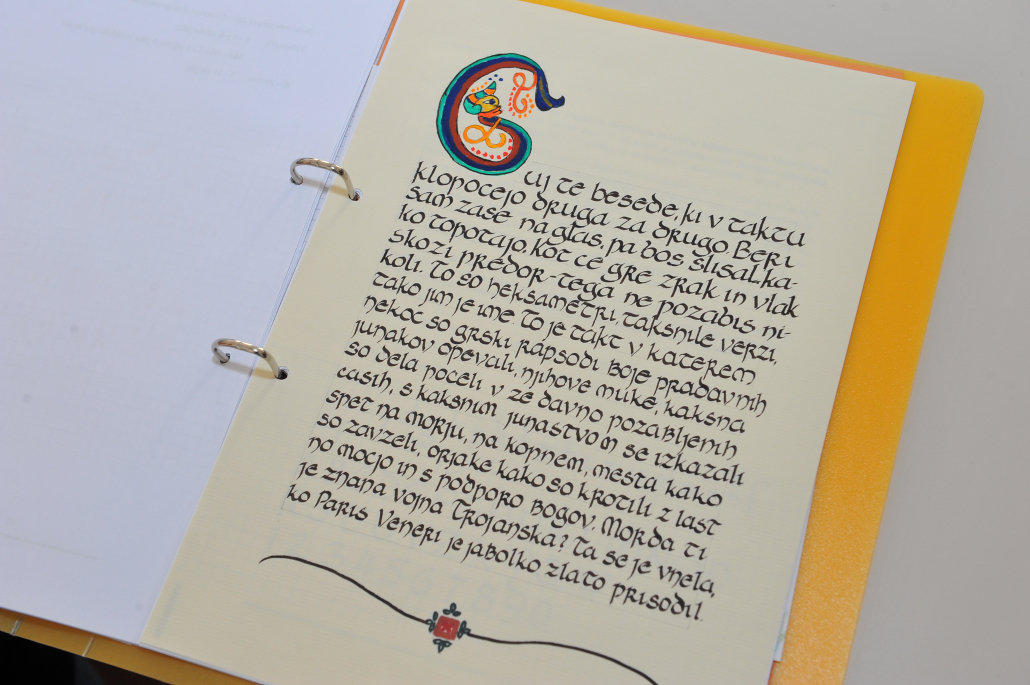 Cuj te besede, ki v taktu
klopocejo druga za drugo Beri
sam zase na glas, pa bos šlisal.ka-
ko topotajo. Kot ce gre zrak in vlak
skozi predor-tega ne pozabis ni-
koli. To so heksametri, taksnile verzi,
tako jim je ime. To je takt v katerem
nekoc so grski rapsodi boje pradavnih
junakov opevali, njihove muke, kaksna
so dela poceli v ze davno pozabljenih
casih, s kaksnim junastvom se izkazali
spet na morju, na kopnem, mesta kako
so zavzeli, orjake kako so krotili z last
no mocjo in s podporo bogov. Morda ti
je znana vojna Trojanska? Ta se je vnela,
ko Paris Veneri je jabolko zlato prisodil.